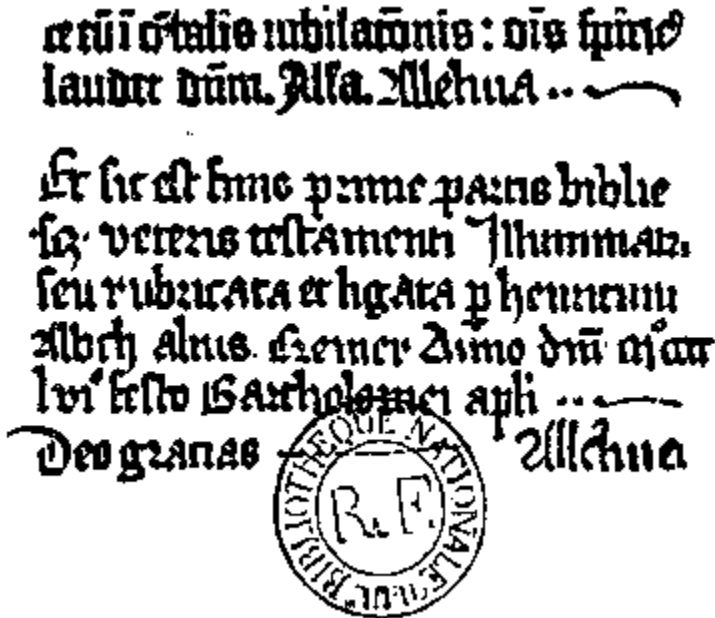 te tū ī cȳbalis iubilacōnis: oīs spirit9
laudet dūm. Alla. Allehuia ..
Et sic est finis prime partis biblie
.sꝫ. veteris testamenti Illuminata.
seu rubricata et ligata ꝑ henricum
Albch alius. Cremer Anno dnī mºcccc
lviº festo Bartholomei apli ..
Deo gracias Allehuia
BIBLIOTHEQUE NATIONALE
R. F.